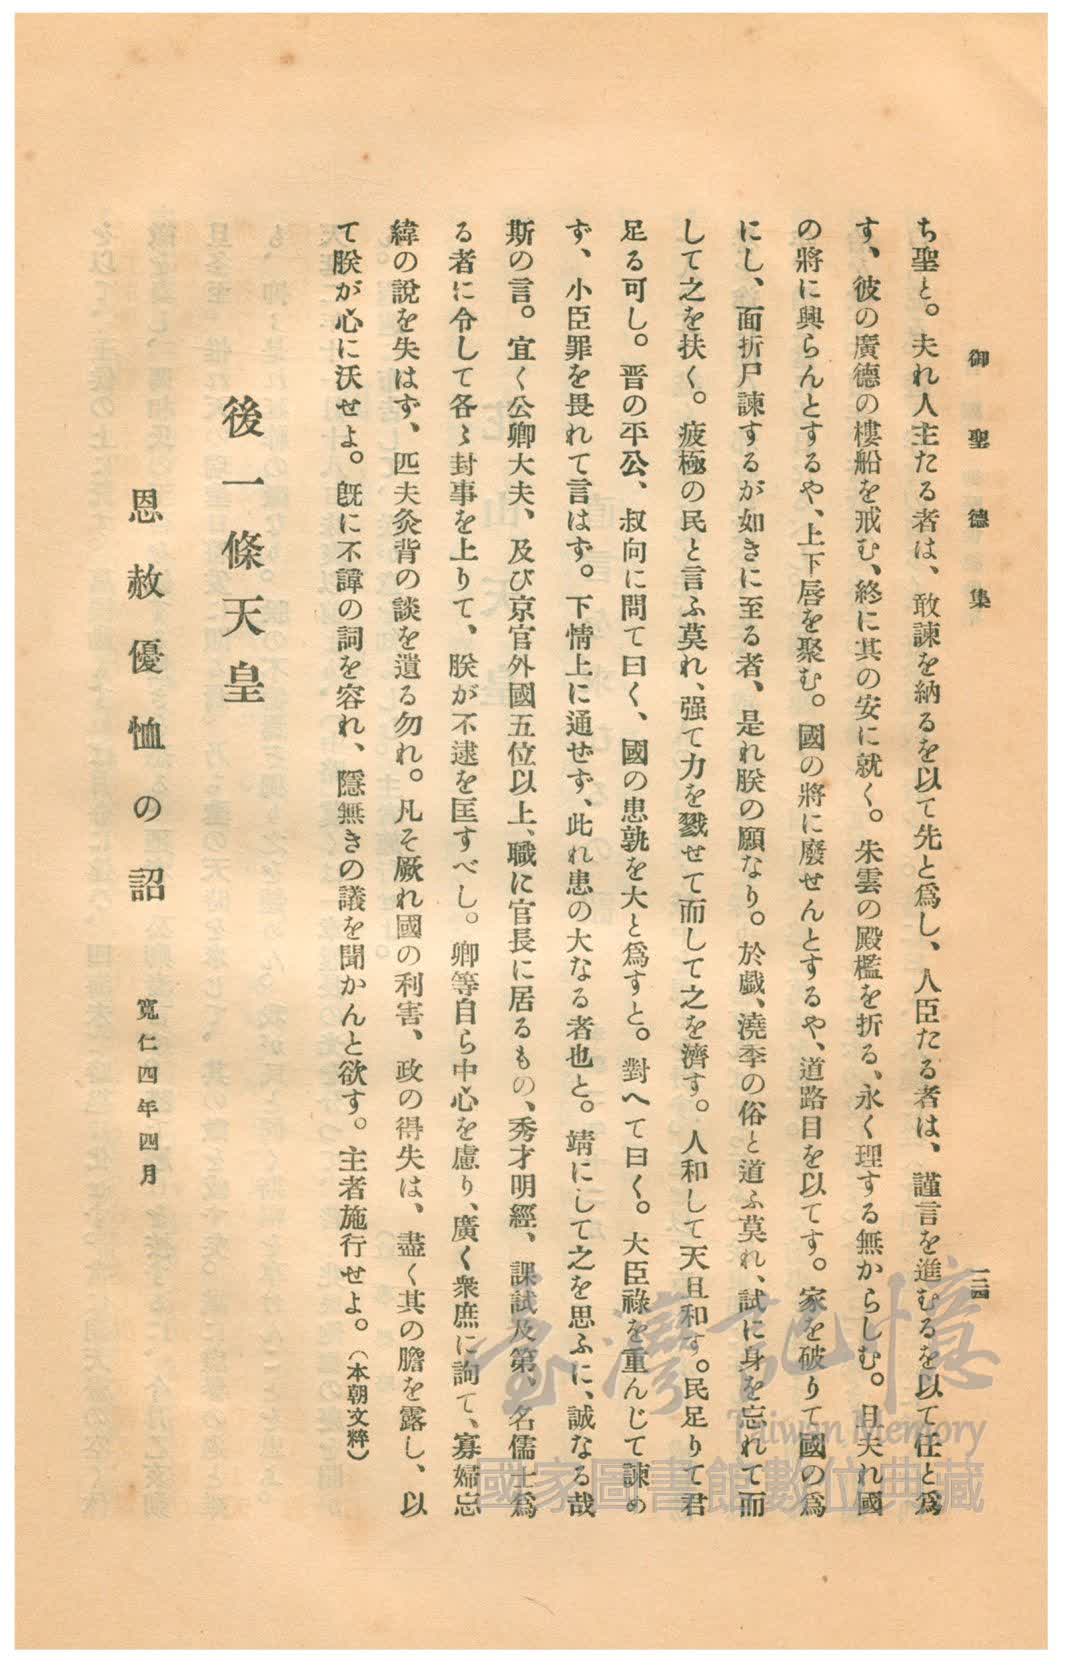 御聖德集
一三四
ち聖と。夫れ人主たる者は、敢諫を納るを以て先と爲し、人臣たる者は、謹言を進むるを以て任と爲
す、彼の廣德の樓船を戒む、終に其の安に就く。朱雲の殿檻を折る、永く理する無からしむ。且夫れ國
の將に興らんとするや、上下唇を聚む。國の將に廢せんとするや、道路目を以てす。家を破りて國の爲
にし、面折尸諫するが如きに至る者、是れ朕の願なり。於戯、澆季の俗と道ふ莫れ、試に身を忘れて而
して之を扶く。疲極の民と言ふ莫れ、强て力を戮せて而して之を濟す。人和して天且和す。民足りて君
足る可し。晋の平公、叔向に問て曰く、國の患孰を大と爲すと。對へて曰く。大臣祿を重んじて諫め
ず、小臣罪を畏れて言はず。下情上に通せず、此れ患の大なる者也と。靖にして之を思ふに、誠なる哉
斯の言。宜く公卿大夫、及び京官外國五位以上、職に官長に居るもの、秀才明經、課試及第、名儒士爲
る者に令して各〻封事を上りて、朕が不逮を匡すべし。卿等自ら中心を慮り、廣く衆庶に詢て、寡婦忘
緯の說を失はず、匹夫灸背の談を遺る勿れ。凡そ厥れ國の利害、政の得失は、盡く其の膽を露し、以
て朕が心に沃せよ。旣に不諱の詞を容れ、隱無きの議を聞かんと欲す。主者施行せよ。（本朝文粹）
後一條天皇
恩赦優恤の詔　寬仁四年四月
臺灣記憶
Taiwan Memory
國家圖書館數位典藏